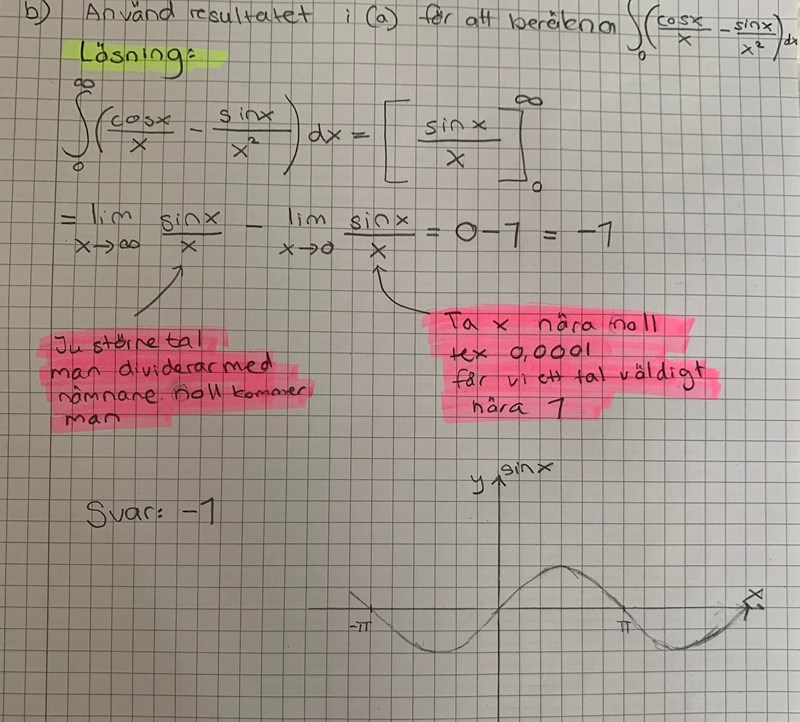 b) Använd resultatet i (a) för att beräkna ∫₀ (cosx/x - sinx/x²) dx
Lösning:
∫₀^∞ (cosx/x - sinx/x²) dx = [sinx/x]₀^∞
= lim x→∞ sinx/x - lim x→0 sinx/x = 0-1 = -1
Ju större tal
man dividerar med
nämnare noll kommer
man
Ta x nära noll
tex 0,0001
får vi ett tal väldigt
nära 1
Svar: -1
y sinx
x
-π π